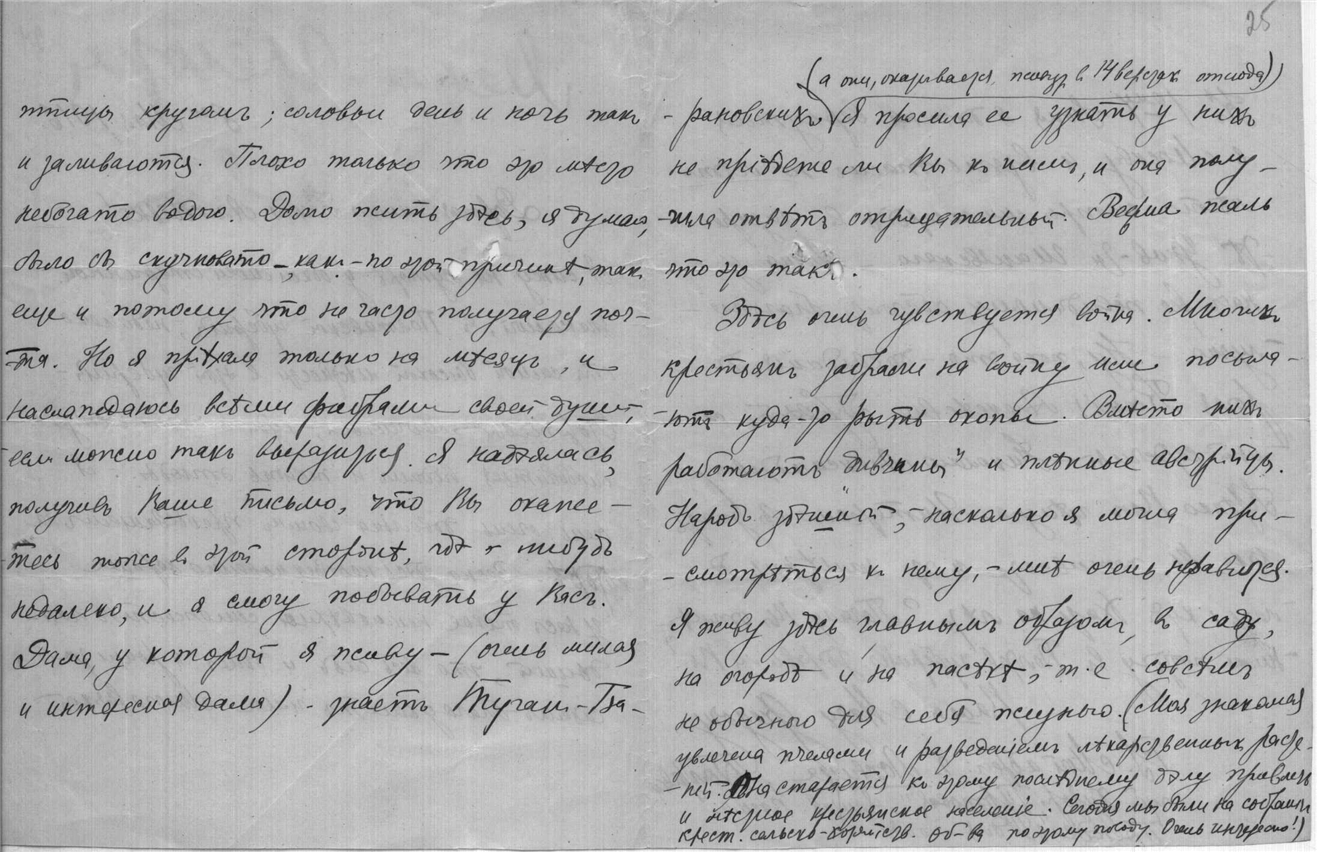 птицы кругомъ; соловьи день и ночь такъ
и заливаются. Плохо только что это мѣсто
небогато водою. Долго жить здѣсь, я думаю,
было бъ скучновато –, какъ – по этой причинѣ, такъ
еще и потому что не часто получается поч-
-та. Но я пріѣхала только на мѣсяцъ, и
наслаждаюсь всѣми фибрами своей души,
если можно такъ выразиться. Я надѣялась,
получивъ Ваше письмо, что Вы окаже-
-тесь тоже въ этой сторонѣ, гдѣ-нибудь
недалеко, и я смогу побывать у Васъ.
Дама, у которой я живу – (очень милая
и интересная дама) – знаетъ Туганъ-Ба-
25
(а они, оказывается, живутъ в 14 верстахъ отсюда))
-рановскихъ (Я просила ее узнать у нихъ
не пріѣдете ли Вы къ нимъ, и она полу-
-чила отвѣтъ отрицательный. Весьма жаль
что это такъ.
Здѣсь очень чувствуется война. Многихъ
крестьянъ забрали на войну или посыла-
-ютъ куда-то рыть окопы. Вмѣсто нихъ
работаютъ "дивчины" и плѣнные австрійцы.
Народъ здѣшній, – насколько я могла при-
-смотрѣться къ нему, – мнѣ очень нравится.
Я живу здѣсь, главнымъ образомъ, въ саду,
на огородѣ и на пасѣкѣ, – т.е. совсѣмъ
не обычною для себя жизнью. (Моя знакомая
увлечена пчелами и разведеніемъ лѣкарственныхъ расте-
-ній. Она старается къ этому послѣднему дѣлу привлечь
и мѣстное крестьянское населеніе. Сегодня мы были на собраніи
крест. сельско-хозяйств. об-ва по этому поводу. Очень интересно!)